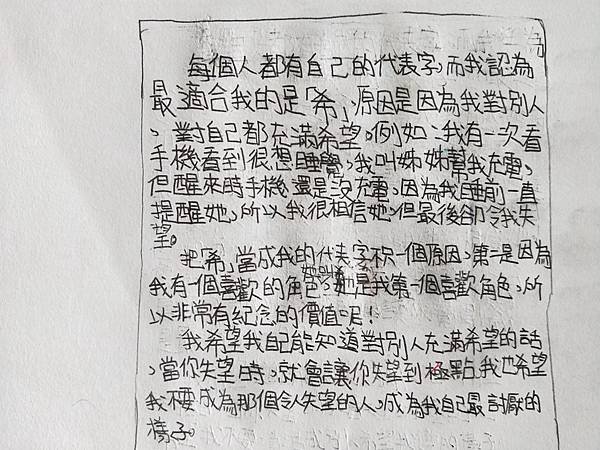 每個人都有自己的代表字,而我認為
最適合我的是「希」,原因是因為我對別人
、對自己都充滿希望。例如:我有一次看
手機看到很想睡覺,我叫姊姊幫我充電,
但醒來時手機還是沒充電,因為我睡前一直
提醒她,所以我很相信她,但最後卻令我失
望。
把「希」當成我的代表字不只一個原因,第二是因為
我有一個喜歡的角色,她是我第一個喜歡角色,所
以非常有紀念的價值呢!
我希望我自己能知道對別人充滿希望的話
,當你失望時,就會讓你失望到極點,我也希望
我不要成為那個令人失望的人,成為我自己最討厭的
樣子。